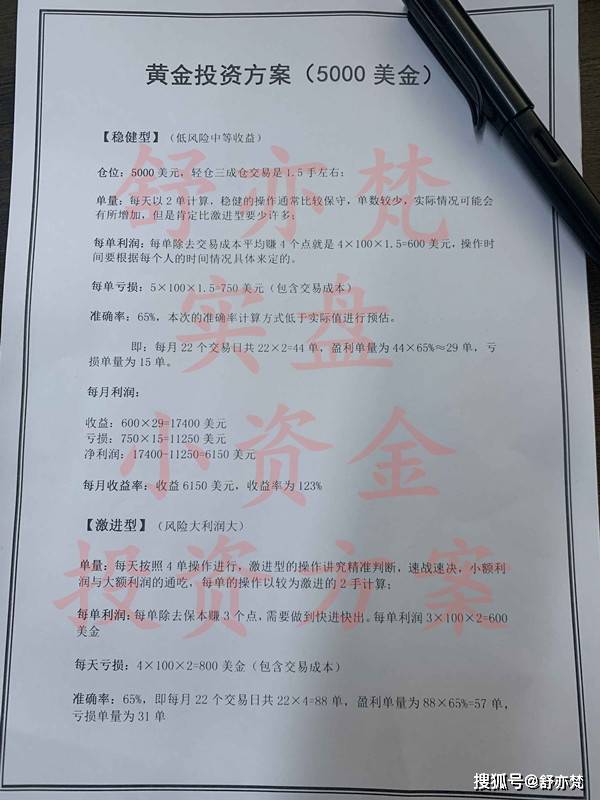 黄金投资方案（5000 美金）
【稳健型】（低风险中等收益）
仓位：5000 美元，轻仓三成仓交易是 1.5 手左右；
单量：每天以 2 单计算，稳健的操作通常比较保守，单数较少，实际情况可能会
有所增加，但是肯定比激进型要少许多；
每单利润：每单除去交易成本平均赚 4 个点就是 4×100×1.5=600 美元，操作时
间要根据每个人的时间情况具体来定的。
每单亏损：5×100×1.5=750 美元（包含交易成本）
准确率：65%，本次的准确率计算方式低于实际值进行预估。
即：每月 22 个交易日共 22×2=44 单，盈利单量为 44×65%≈29 单，亏
损单量为 15 单。
每月利润：
收益：600×29=17400 美元
亏损：750×15=11250 美元
净利润：17400-11250=6150 美元
每月收益率：收益 6150 美元，收益率为 123%
【激进型】（风险大利润大）
单量：每天按照 4 单操作进行，激进型的操作讲究精准判断，速战速决，小额利
润与大额利润的通吃，每单的操作以较为激进的 2 手计算；
每单利润：每单除去保本赚 3 个点，需要做到快进快出。每单利润 3×100×2=600
美金
每天亏损：4×100×2=800 美金（包含交易成本）
准确率：65%，即每月 22 个交易日共 22×4=88 单，盈利单量为 88×65%=57 单，
亏损单量为 31 单
舒亦梵
实盘
小资金
投资方案
搜狐号@舒亦梵